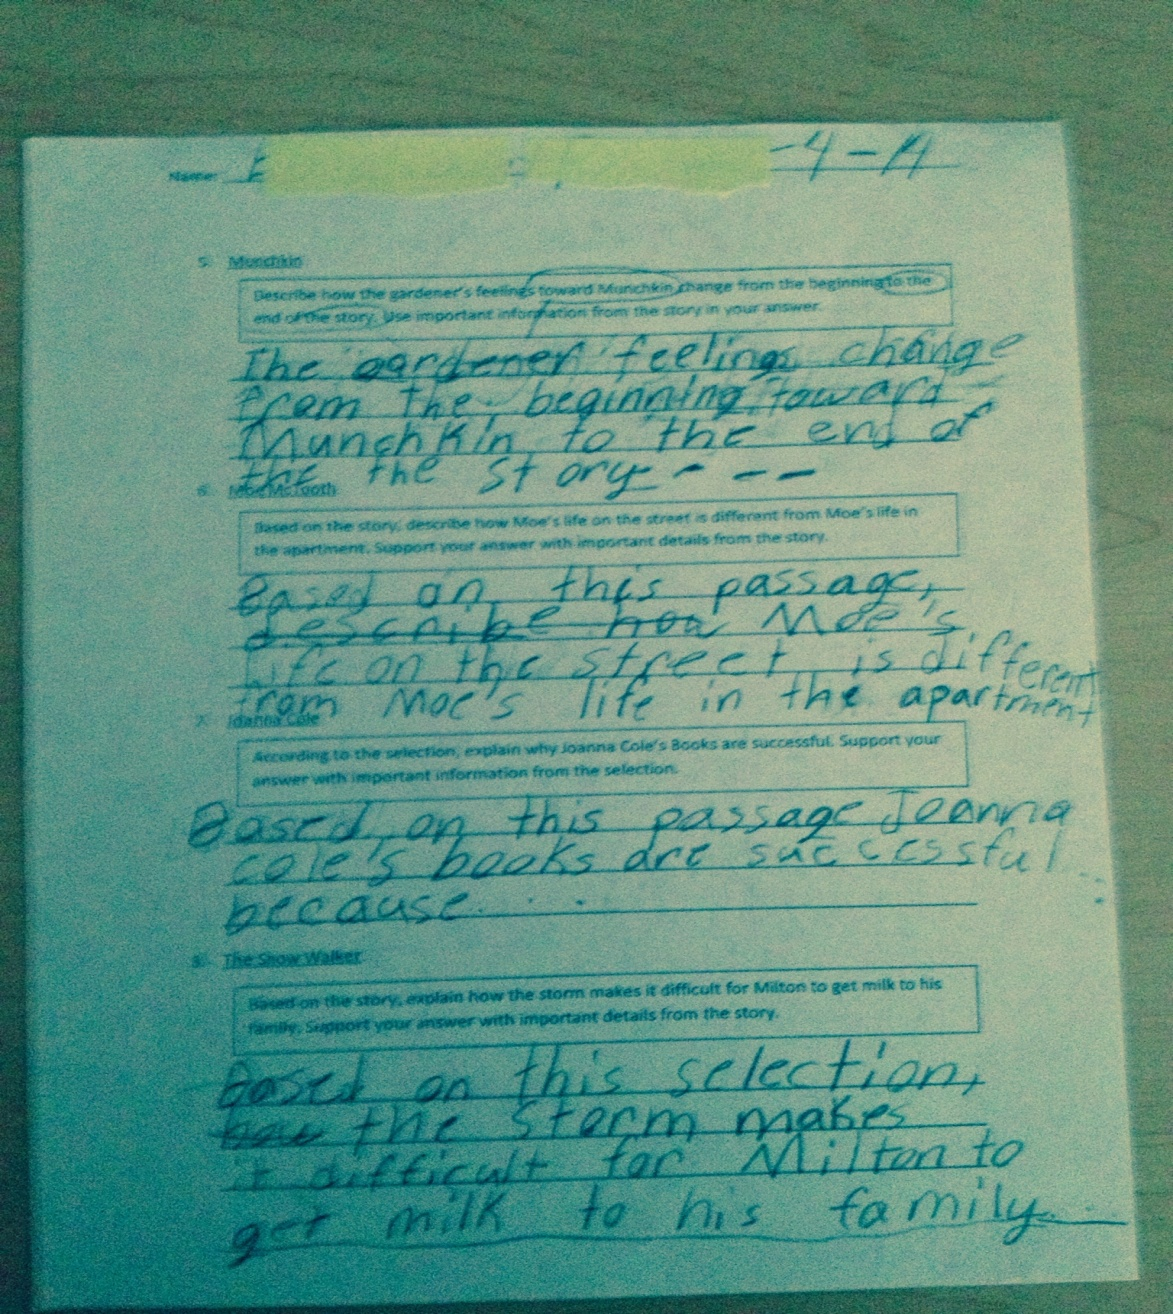 Name: -4-A
5. Munchkin
Describe how the gardener's feelings toward Munchkin change from the beginning to the
end of the story. Use important information from the story in your answer.
The gardener feelings change
from the beginning toward
Munchkin to the end of
the the story - - -
6. Moe McTooth
Based on the story, describe how Moe's life on the street is different from Moe's life in
the apartment. Support your answer with important details from the story.
Based on this passage,
describe how Moe's
life on the street is different
from Moe's life in the apartment
7. Joanna Cole
According to the selection, explain why Joanna Cole's Books are successful. Support your
answer with important information from the selection.
Based on this passage Joanna
cole's books are successful
because....
8. The Snow Walker
Based on the story, explain how the storm makes it difficult for Milton to get milk to his
family. Support your answer with important details from the story.
Based on this selection,
how the storm makes
it difficult for Milton to
get milk to his family